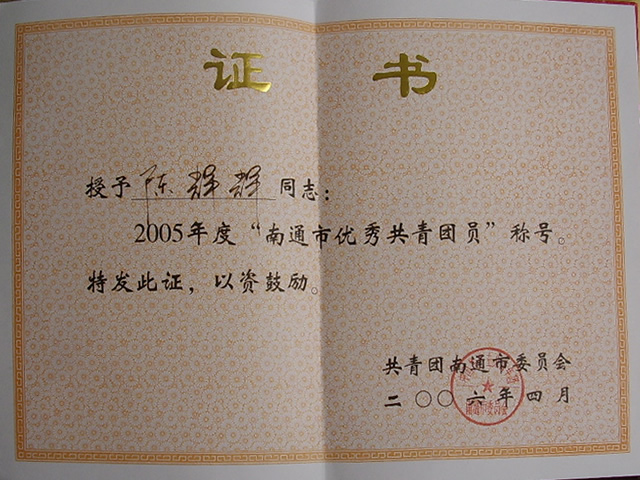 证 书
授予 陈辉辉 同志：
2005年度“南通市优秀共青团员”称号。
特发此证，以资鼓励。
共青团南通市委员会
二〇〇六年四月